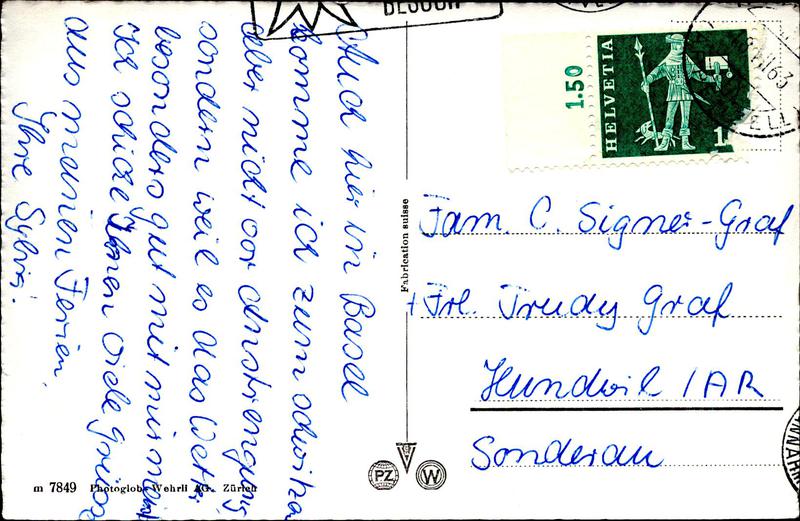 Auch hier in Basel
komme ich zum schwitzen
aber nicht vor Anstrengung
sondern weil es das Wetter
besonders gut mit mir meint
Ich schicke Ihnen viele Grüsse
aus meinen Ferien.
Ihre Sylvia.
1.50
HELVETIA
5
1
63
Fabrication suisse
Fam. C. Signer-Graf
+ Frl. Trudy Graf
Hundwil / AR
Sonderau
m 7849 Photoglob-Wehrli AG., Zürich
PZ
W